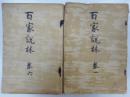 百家説林 巻一
百家説林 巻六